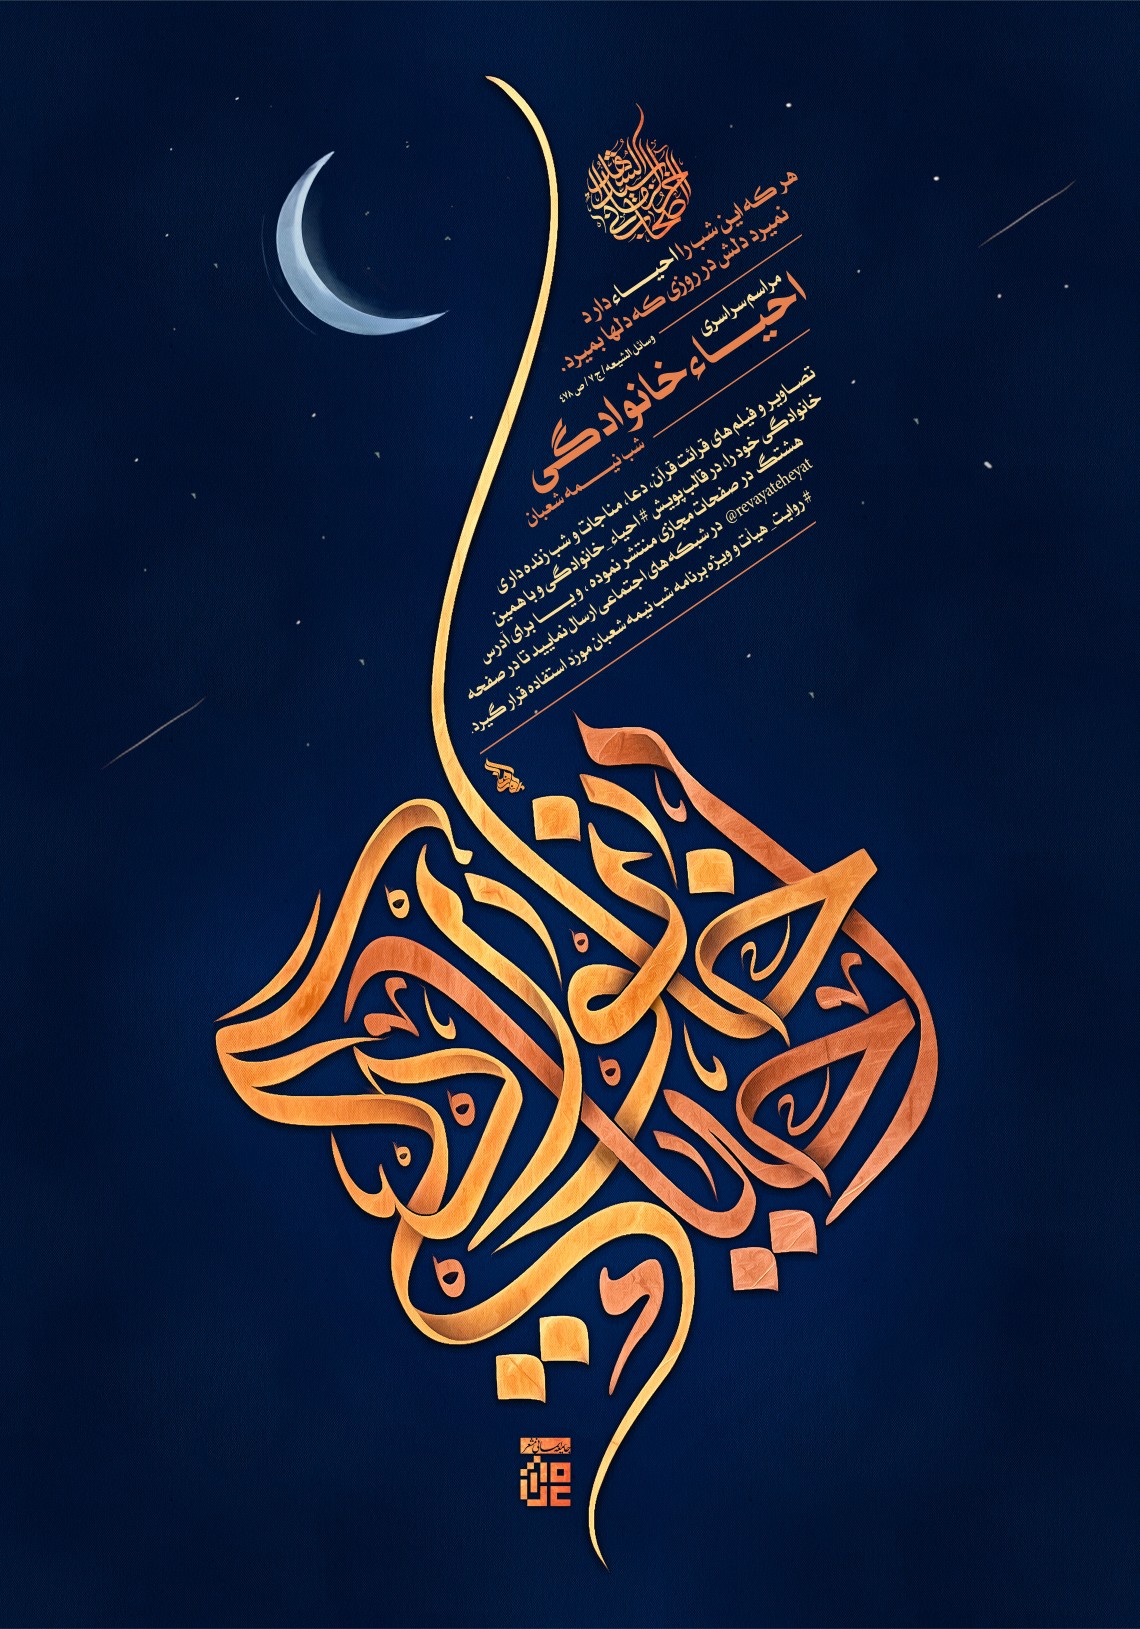 هر که این شب را احیـــاء دارد
نمیرد دلش در روزی که دلها بمیرد.
وسائل الشیعه/ج۷/ص۴۷۸
مراسم سراسری
احیـــاء خانوادگی
شب نیـــمه شعبان
تصاویر و فیلم های قرائت قرآن، دعا، مناجات و شب زنده داری
خانوادگی خود را، در قالب پویش #احیاء_خانوادگی و با همین
هشتگ در صفحات مجازی منتشر نموده، و یـــا برای آدرس
@revayateheyat در شبکه های اجتماعی ارسال نمایید تا در صفحه
#روایت_هیأت و ویژه برنامه شب نیمه شعبان مورد استفاده قرار گیرد.
احیاء
خانوادگی